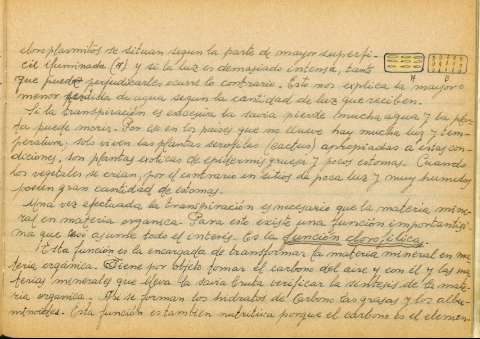 cloroplasmitos se situan segun la parte de mayor superfi-
cie iluminada (*) y si la luz es demasiado intensa, tanto
que puede perjudicarles ocurre lo contrario. Esto nos explica la mayor o
menor perdida de agua segun la cantidad de luz que reciben.
Si la transpiración es excesiva la savia pierde mucha agua y la plan-
ta puede morir. Por eso en los paises que no llueve hay mucha luz y tem-
peratura, solo viven las plantas xerofilas (cactus) apropiadas a estas con-
diciones, son plantas exoticas de epidermis gruesa y pocos estomas. Cuando
los vegetales se crian, por el contrario en sitios de poca luz y muy humedos
poseen gran cantidad de estomas.
Una vez efectuada la transpiración es necesario que la materia mine-
ral en materia organica. Para esto existe una función importantisi-
ma que asume todo el interés. Es la función clorofilica.
Esta función es la encargada de transformar la materia mineral en ma-
teria orgánica. Tiene por objeto tomar el carbono del aire y con él y las ma-
terias minerales que lleva la savia bruta verificar la sintesis de la mate-
ria organica. Asi se forman los hidratos de carbono las grasas y los albu-
minoides. Esta función es tambien nutritiva porque el carbono es el elemen-